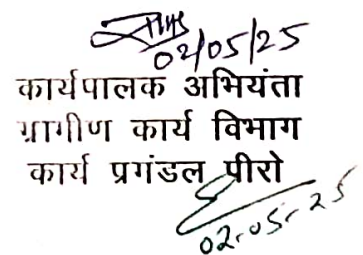 02/05/25
कार्यपालक अभियंता
ग्रामीण कार्य विभाग
कार्य प्रमंडल पीरो
02.05.25